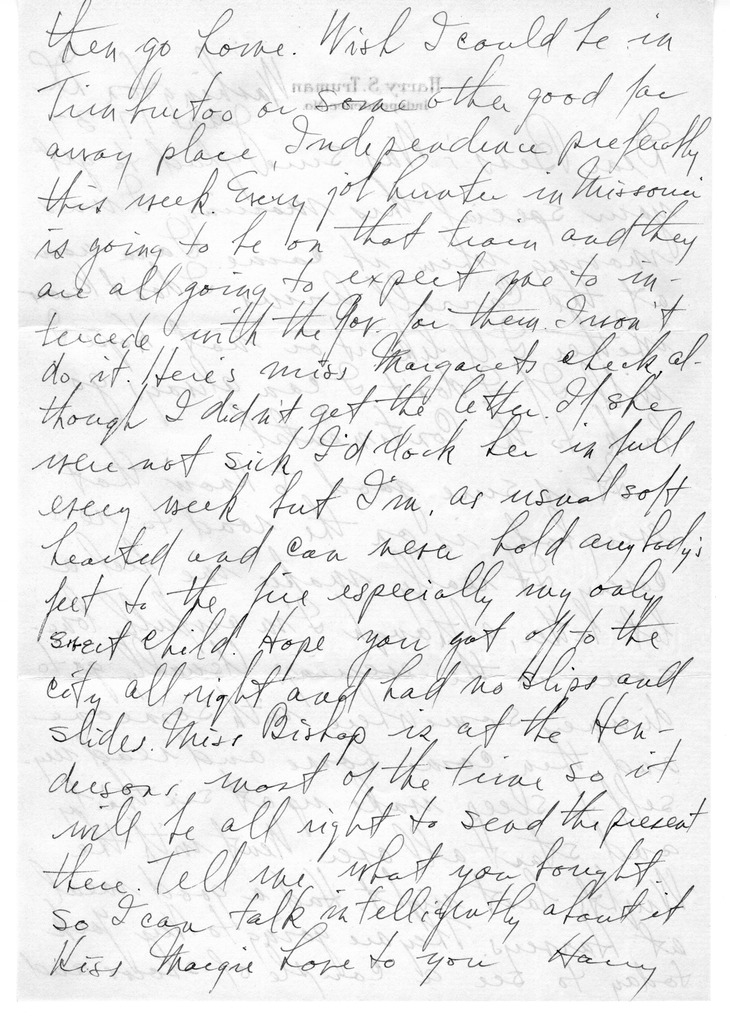 then go home. Wish I could be in
Timbuctoo or some other good far
away place, Independence preferably
this week. Every job hunter in Missouri
is going to be on that train and they
are all going to expect me to in-
tercede with the Gov. for them. I won't
do it. Here's miss Margaret's check, al-
though I didn't get the letter. If she
were not sick I'd dock her in full
every week but I'm, as usual soft
hearted and can never hold anybody's
feet to the fire especially my only
sweet child. Hope you got off to the
city all right and had no slips and
slides. Miss Bishop is at the Hen-
dersons, most of the time so it
will be all right to send the present
there. Tell me what you bought
so I can talk intelligently about it
Kiss Margie Love to you Harry